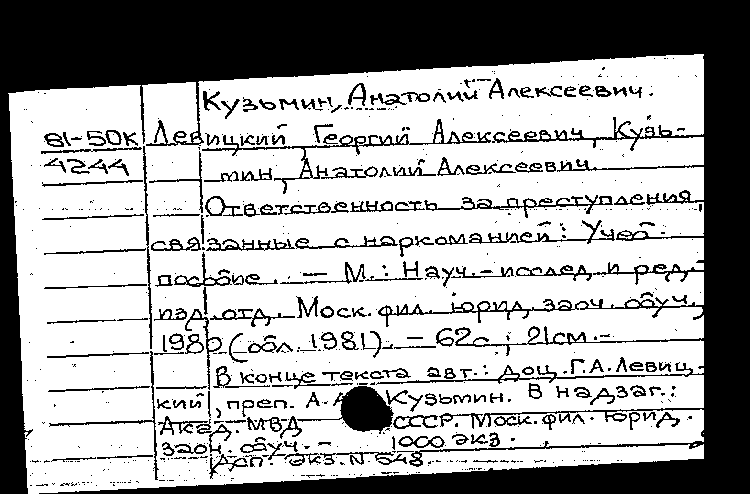 Кузьмин, Анатолий Алексеевич.
81-50К Левицкий, Георгий Алексеевич, Кузь-
4244 мин, Анатолий Алексеевич.
Ответственность за преступления,
связанные с наркоманией: Учеб.
пособие. — М.: Науч.-исслед. и ред.-
изд. отд. Моск. фил. юрид. заоч. обуч.,
1980 (обл. 1981). — 62с.; 21см.-
В конце текста авт.: доц. Г.А. Левиц-
кий, преп. А.А. Кузьмин. В надзаг.:
Акад. МВД СССР. Моск. фил. юрид.
заоч. обуч. - 1000 экз.
Доп. экз. N 648